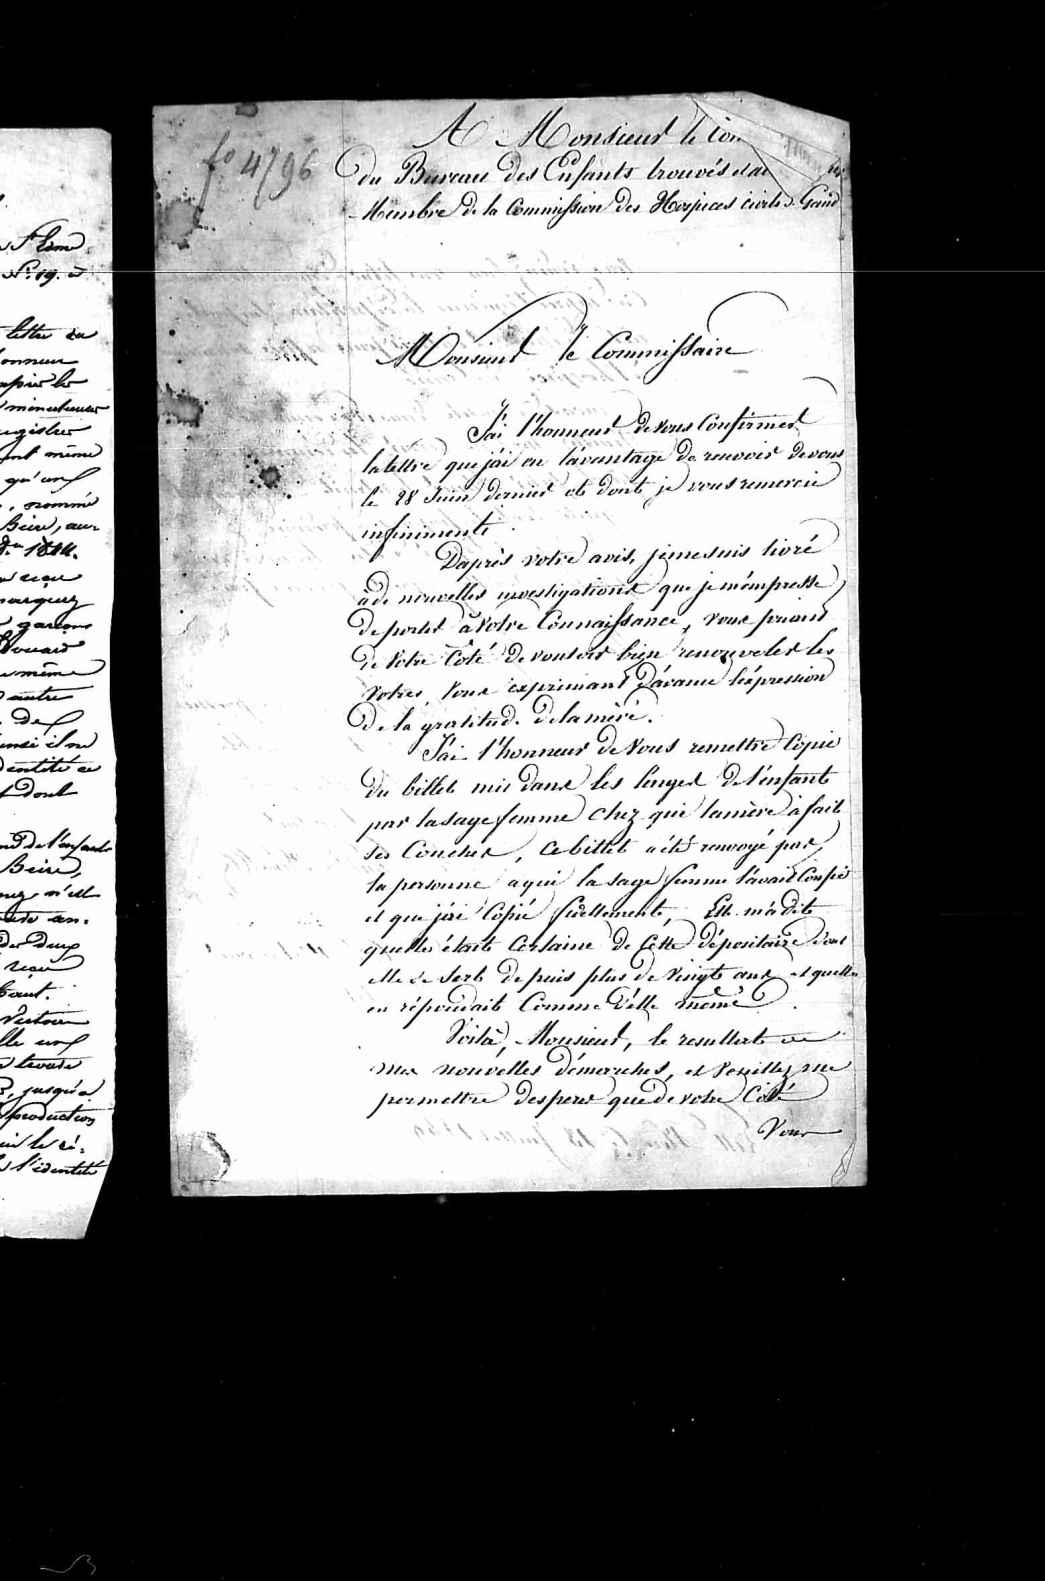 fo 4796
A Monsieur le Com
du Bureau des Enfants trouvés et
Membre de la Commission des Hospices civils Gand
Monsieur le Commissaire
J'ai l'honneur de vous Confirmer
la lettre que j'ai eu l'avantage de recevoir de vous
le 28 Juin dernier et dont je vous remercie
infiniment.
Daprès votre avis, je me suis livré
à de nouvelles investigations que je m'émpresse
de porter à votre Connaissance, vous priant
de votre Côté de vouloir bien renouveler les
votres, vous exprimant d'avance l'éxpression
de la gratitude de la mère.
J'ai l'honneur de vous remettre Copie
du billet mis dans les langes de l'enfant
par la sage femme chez qui la mère a fait
ses Couches, Ce billet a été renvoyé par
la personne a qui la sage femme l'avait Confié
et que j'ai Copié fidellement, Elle m'a dit
quelle étant Certaine de Cette dépositaire dont
elle se sert depuis plus de vingt ans et quelle
en répondait Comme d'elle même.
Voilà, Monsieur, le resultat de
mes nouvelles démarches, et veuillez me
permettre desperer que de votre Côté
Vous
St Lième
No 19. à
lettre du
honneur
minutieuses
registres
ont même
qu'un
, nommé
Bière, au
1814.
reçu
marquez
garcons
Edouard
même
autre
de
ainsi il ne
identité ce
dont
de l'enfant
Bière,
deux
reçu
tout.
lle un
trouve
, jusqu'à
production
l'identité